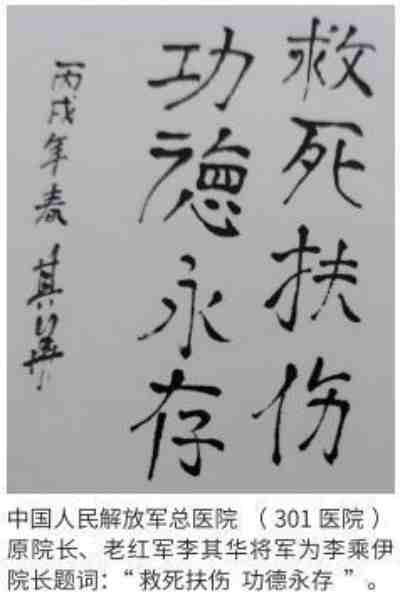 救死扶伤
功德永存
丙戌年春 其华
中国人民解放军总医院 （301医院）
原院长、老红军李其华将军为李乘伊
院长题词：“救死扶伤 功德永存”。